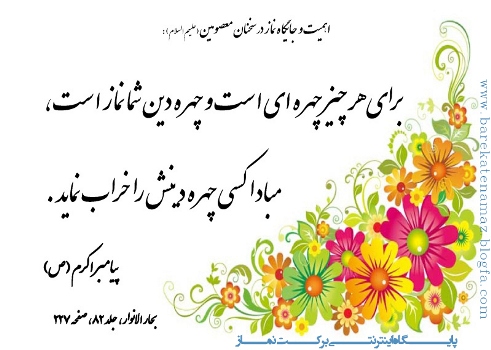 اهمیت و جایگاه نماز در سخنان معصومین (علیهم السلام) :
برای هر چیز چهره ای است و چهره دین شما نماز است،
مبادا کسی چهره دینش را خراب نماید .
پیامبر اکرم (ص)
بحار الانوار، جلد ۸۲، صفحه ۲۲۷
پایـــگاه اینترنتـــی برکـــت نمـــاز
www.barekatenamaz.blogfa.com